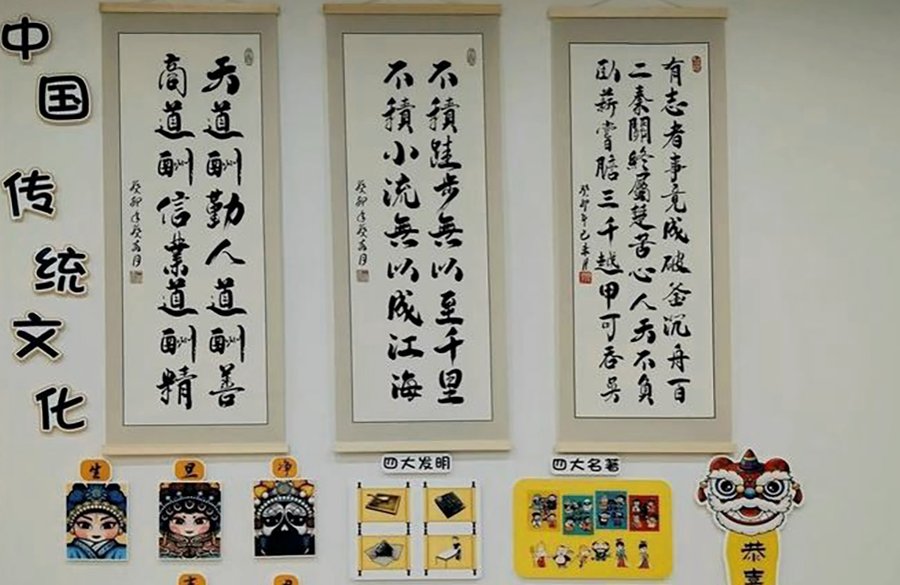 中国传统文化
天道酬勤人道酬善
商道酬信業道酬精
癸卯年癸亥月
不積跬步無以至千里
不積小流無以成江海
癸卯年癸亥月
有志者事竟成破釜沉舟百
二秦關終屬楚苦心人天不負
卧薪嘗膽三千越甲可吞吳
癸卯年己未月
生
旦
净
四大发明
四大名著
恭喜